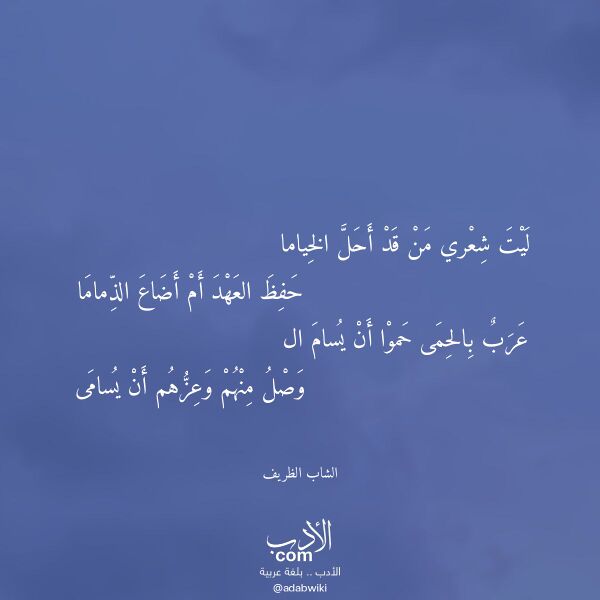 لَيْتَ شِعْري مَنْ قَدْ أَحَلَّ الخِياما
حَفِظَ العَهْدَ أَمْ أَضَاعَ الذِّمامَا
عَرَبٌ بِالحِمَى حَموْا أَنْ يُسامَ ال
وَصْلُ مِنْهُمْ وَعِزُّهُم أَنْ يُسامَى
الشاب الظريف
الأدب
com
الأدب .. بلغة عربية
@adabwiki